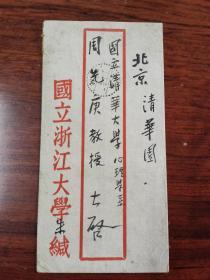 北京 清華園
國立清華大學心理學系
周先庚教授 大啟
國立浙江大學朱緘